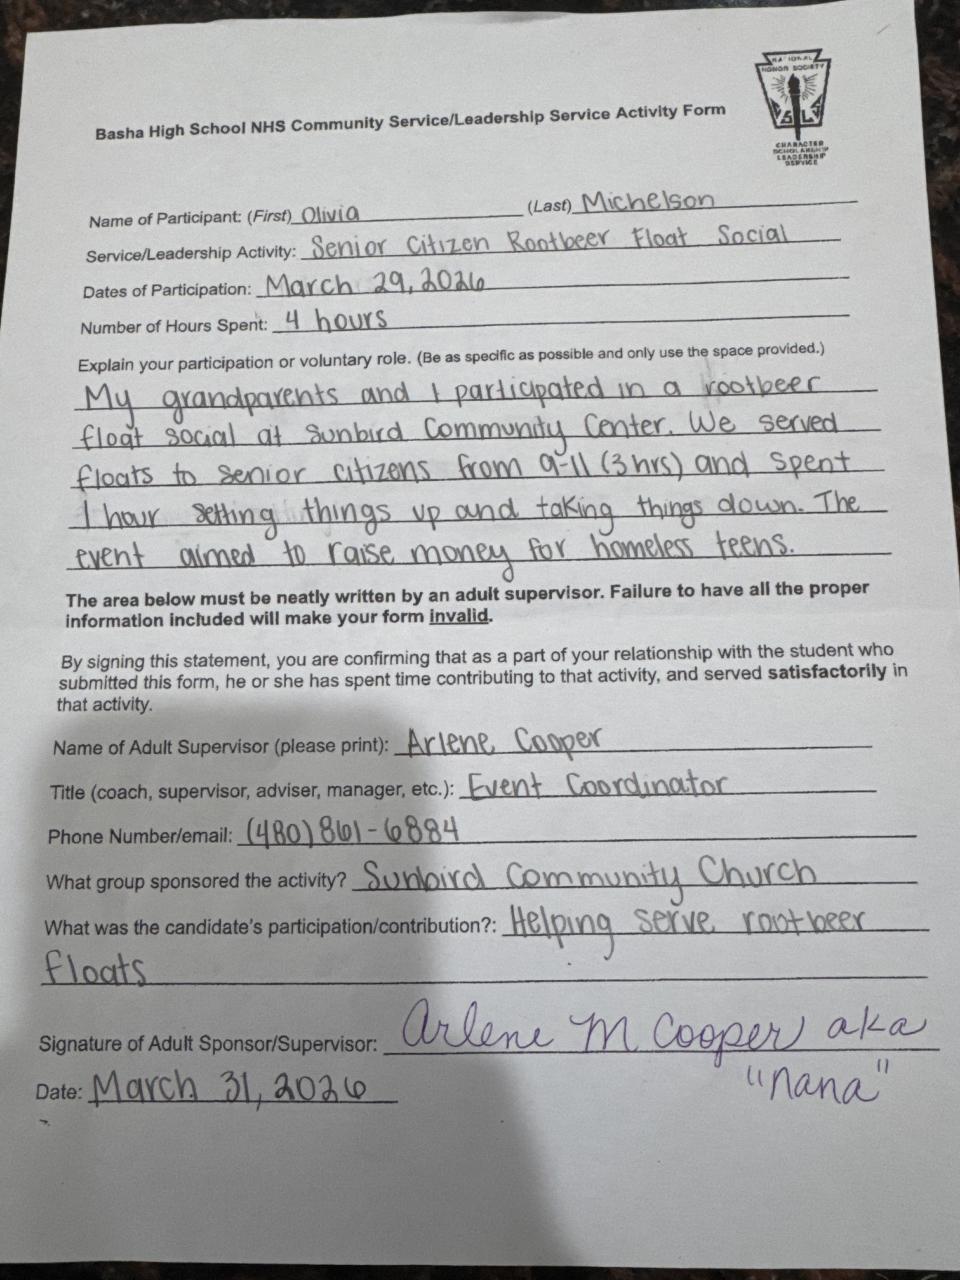 NATIONAL
HONOR SOCIETY
S L
CHARACTER
SCHOLARSHIP
LEADERSHIP
SERVICE
Basha High School NHS Community Service/Leadership Service Activity Form
Name of Participant: (First) Olivia (Last) Michelson
Service/Leadership Activity: Senior Citizen Rootbeer Float Social
Dates of Participation: March 29, 2026
Number of Hours Spent: 4 hours
Explain your participation or voluntary role. (Be as specific as possible and only use the space provided.)
My grandparents and I participated in a rootbeer
float social at Sunbird Community Center. We served
floats to senior citizens from 9-11 (3 hrs) and spent
1 hour setting things up and taking things down. The
event aimed to raise money for homeless teens.
The area below must be neatly written by an adult supervisor. Failure to have all the proper
information included will make your form invalid.
By signing this statement, you are confirming that as a part of your relationship with the student who
submitted this form, he or she has spent time contributing to that activity, and served satisfactorily in
that activity.
Name of Adult Supervisor (please print): Arlene Cooper
Title (coach, supervisor, adviser, manager, etc.): Event Coordinator
Phone Number/email: (480) 861-6884
What group sponsored the activity? Sunbird Community Church
What was the candidate's participation/contribution?: Helping serve rootbeer
floats
Signature of Adult Sponsor/Supervisor: Arlene M Cooper aka
"nana"
Date: March 31, 2026